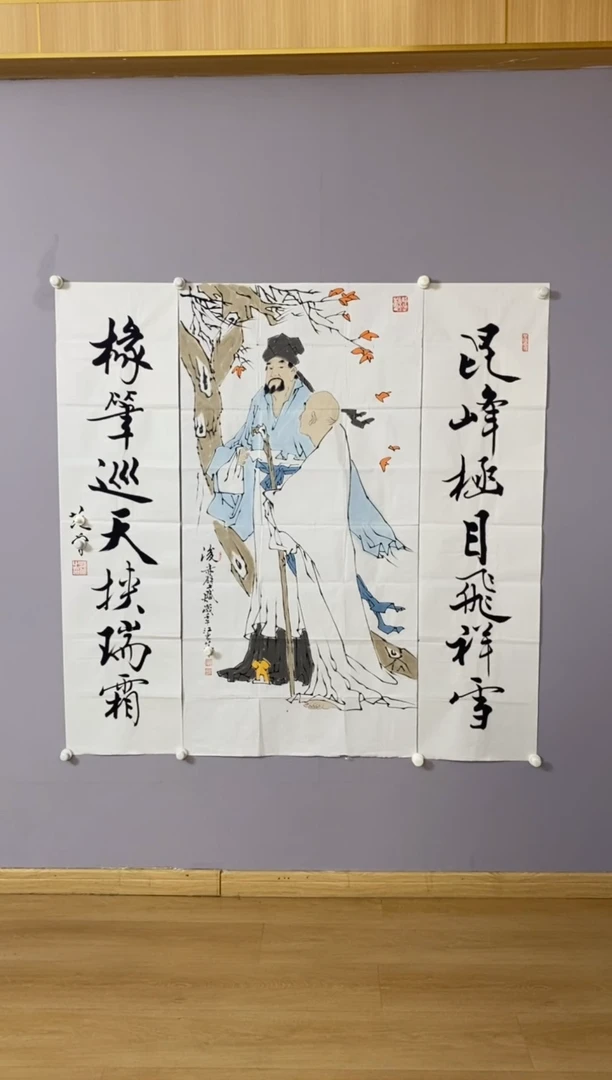 昆峰極目飛祥雪
椽筆巡天挾瑞霜